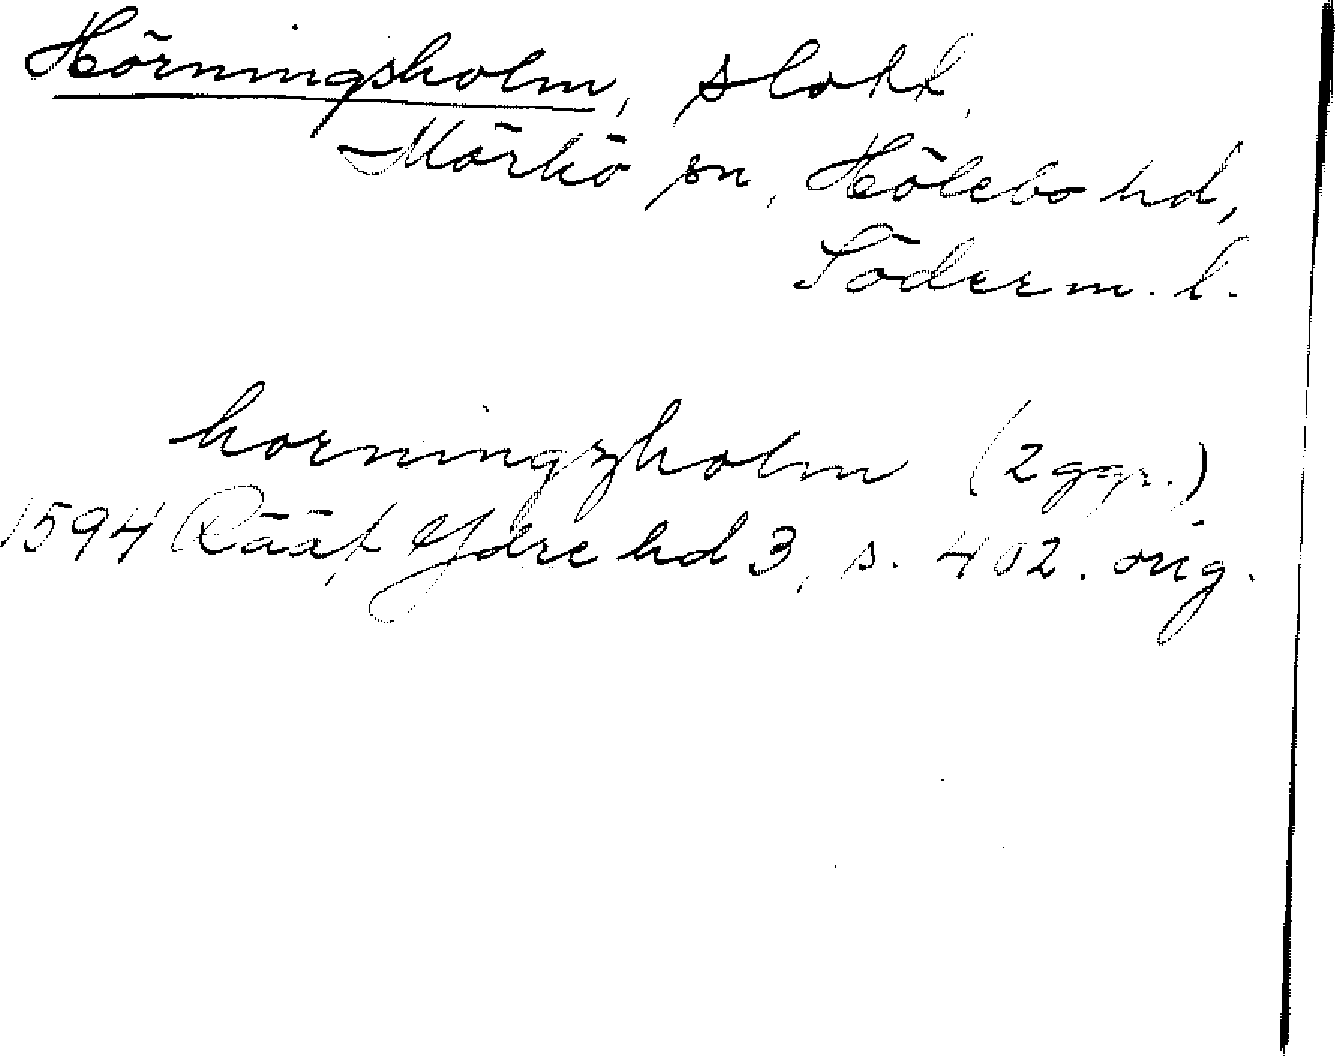 Hörningsholm, slott,
Mörkö sn, Hölebo hd,
Söderm. l.
horningzholm (2 ggr.)
1594 Rääf Ydre hd 3, s. 402. orig.